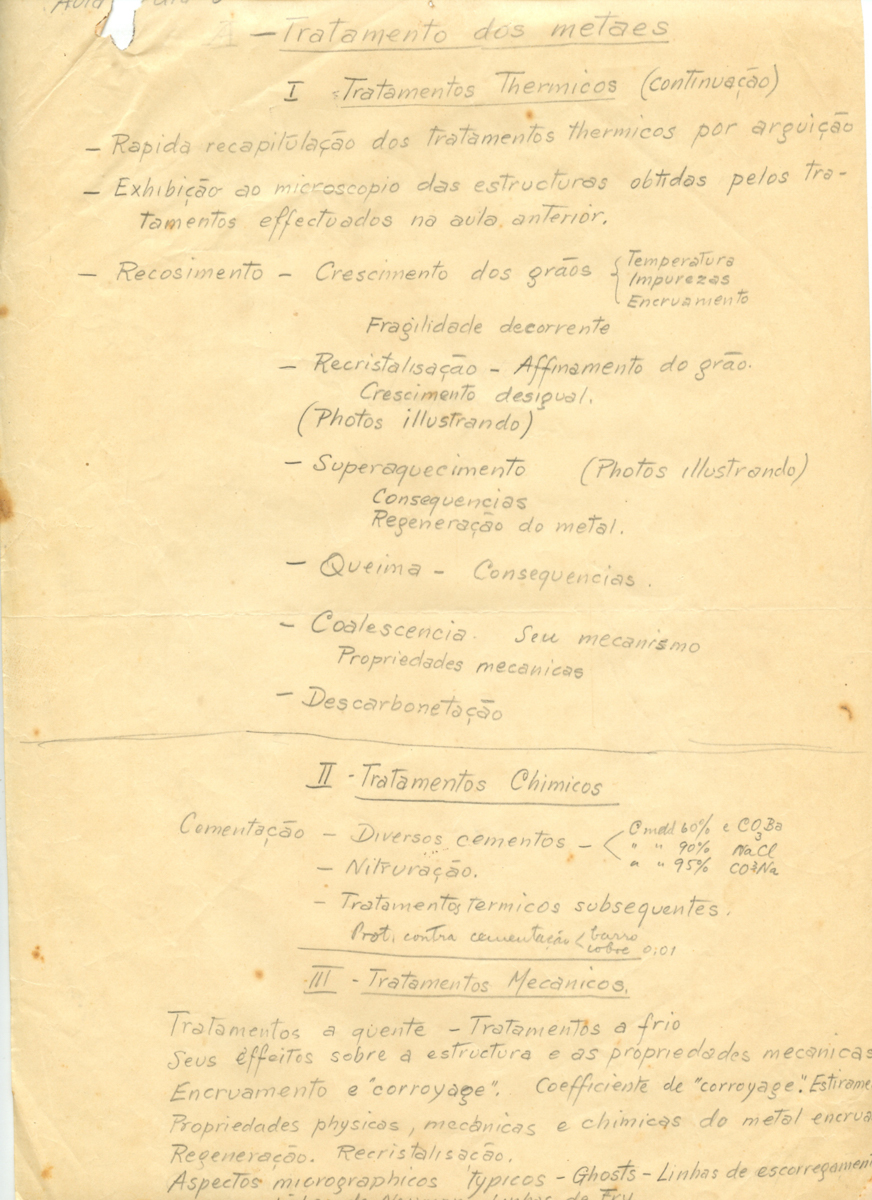 Aula
A - Tratamento dos metaes
I Tratamentos Thermicos (continuação)
- Rapida recapitulação dos tratamentos thermicos por arguição
- Exhibição ao microscopio das estructuras obtidas pelos tra-
tamentos effectuados na aula anterior.
- Recosimento - Crescimento dos grãos { Temperatura
Impurezas
Encruamento
Fragilidade decorrente
- Recristalisação - Affinamento do grão.
Crescimento desigual.
(Photos illustrando)
- Superaquecimento (Photos illustrando)
Consequencias
Regeneração do metal.
- Queima - Consequencias.
- Coalescencia. Seu mecanismo
Propriedades mecanicas
- Descarbonetação
II - Tratamentos Chimicos
Comentação - Diversos cementos - < C madd 60% e CO3Ba
" " 90% NaCl
" " 95% CO3Na
- Nitruração.
- Tratamentos termicos subsequentes.
Prot. contra cementação < barro
cobre 0,01
III - Tratamentos Mecanicos.
Tratamentos a quente - Tratamentos a frio
Seus effeitos sobre a estructura e as propriedades mecanicas
Encruamento e "corroyage". Coefficiente de "corroyage". Estirame
Propriedades physicas, mecanicas e chimicas do metal encrua
Regeneração. Recristalisação.
Aspectos micrographicos typicos - Ghosts - Linhas de escorregament
de Neumann Linhas de Fry